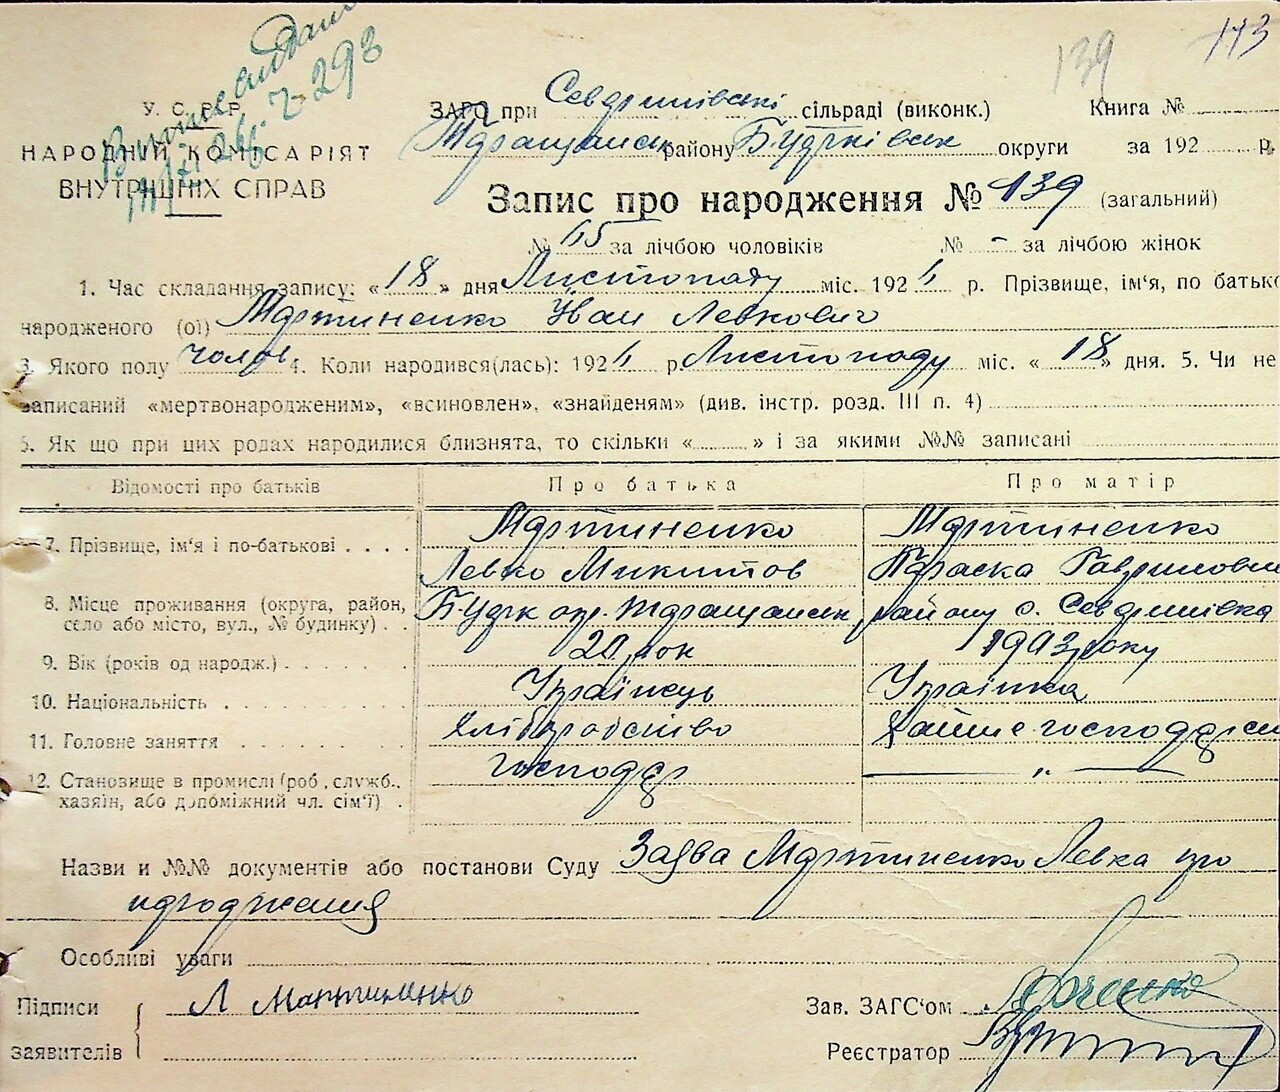 139
113
293
У. С. Р. Р.
НАРОДНИЙ КОМІСАРІЯТ
ВНУТРІШНІХ СПРАВ
ЗАГС при сільраді (виконк.)
району округи
Книга №
за 192 р.
Запис про народження № 139 (загальний)
№ 65 за лічбою чоловіків № - за лічбою жінок
1. Час складання запису: «18» дня Листопаду міс. 192 р. Прізвище, ім'я, по батьк
народженого (ої) Мартиненко Іван Левкович
3. Якого полу чолов. 4. Коли народився(лась): 192 р. Листопаду міс. «18» дня. 5. Чи не
записаний «мертвонародженим», «всиновлен», «знайденям» (див. інстр. розд. III п. 4)
6. Як що при цих родах народилися близнята, то скільки « » і за якими №№ записані
Відомості про батьків Про батька Про матір
7. Прізвище, ім'я і по-батькові Мартиненко Мартиненко
Левко Микитов Параска
8. Місце проживання (округа, район, село або місто, вул., № будинку) району с.
9. Вік (років од народж.) 20 рок 1903 року
10. Національність Українець Українка
11. Головне заняття Хліборобство
12. Становище в промислі (роб., служб., хазяїн, або допоміжний чл. сім'ї) господар — „ —
Назви и №№ документів або постанови Суду Заява Мартиненко Левка про
народження
Особливі уваги
Підписи
заявителів
Л Мартиненко
Зав. ЗАГС'ом
Реєстратор